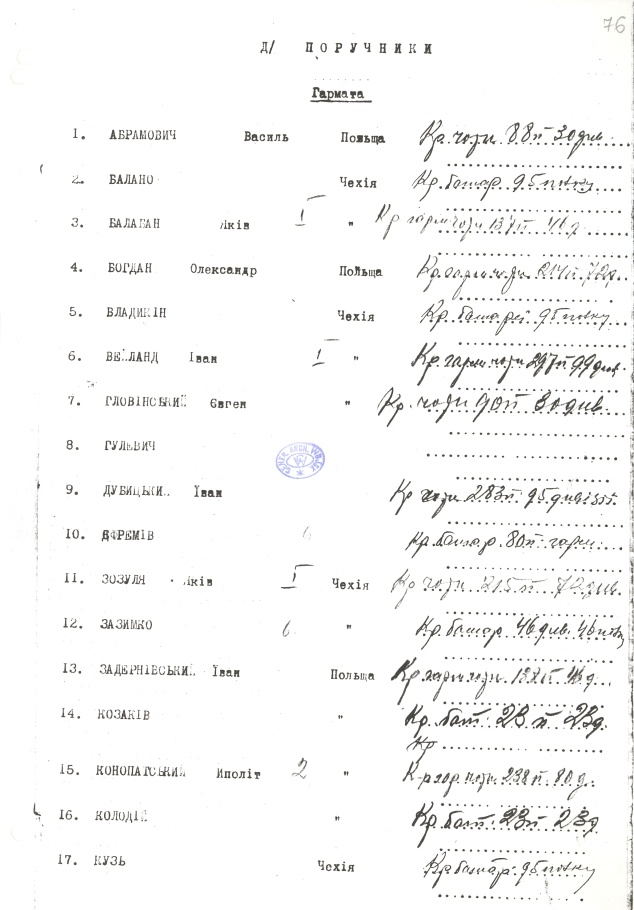 76
Д/ ПОРУЧНИКИ
Гармата
1. АБРАМОВИЧ Василь Польща Кр. чорн. 88 п 30 див.
2. БАЛАНО Чехія Кр. батар. 95 полку
3. БАЛАБАН Яків I " Кр гарм чорн 137 п 46 д
4. БОГДАН Олександр Польща Кр. гарм. чорн. 214 п 72 д.
5. ВЛАДИКІН Чехія Кр. батареї 95 полку
6. ВЕЙЛАНД Іван I " Кр. гарм чорн 297 п 99 див.
7. ГЛОВІНСЬКИЙ Євген " Кр. чорн 90 п 30 див.
8. ГУЛЕВИЧ
9. ДУБИЦЬКИЙ Іван Кр чорн. 283 п 95 дивізії.
10. ЄФРЕМІВ 6 Кр. батар. 80 п гарм.
11. ЗОЗУЛЯ Яків I Чехія Кр чорн. 215 п 72 див.
12. ЗАЗИМКО 6 " Кр. батар 46 див. 46 полку
13. ЗАДЕРНІВСЬКИЙ Іван Польща Кр гарм чорн. 137 п 46 д.
14. КОЗАКІВ " Кр. бат. 23 п 23 д.
Кр
15. КОНОПАТСЬКИЙ Иполіт 2 " Кр 238 п 80 д.
16. КОЛОДІЙ " Кр. бат. 23 п 23 д
17. КУЗЬ Чехія Кр батар. 95 полку